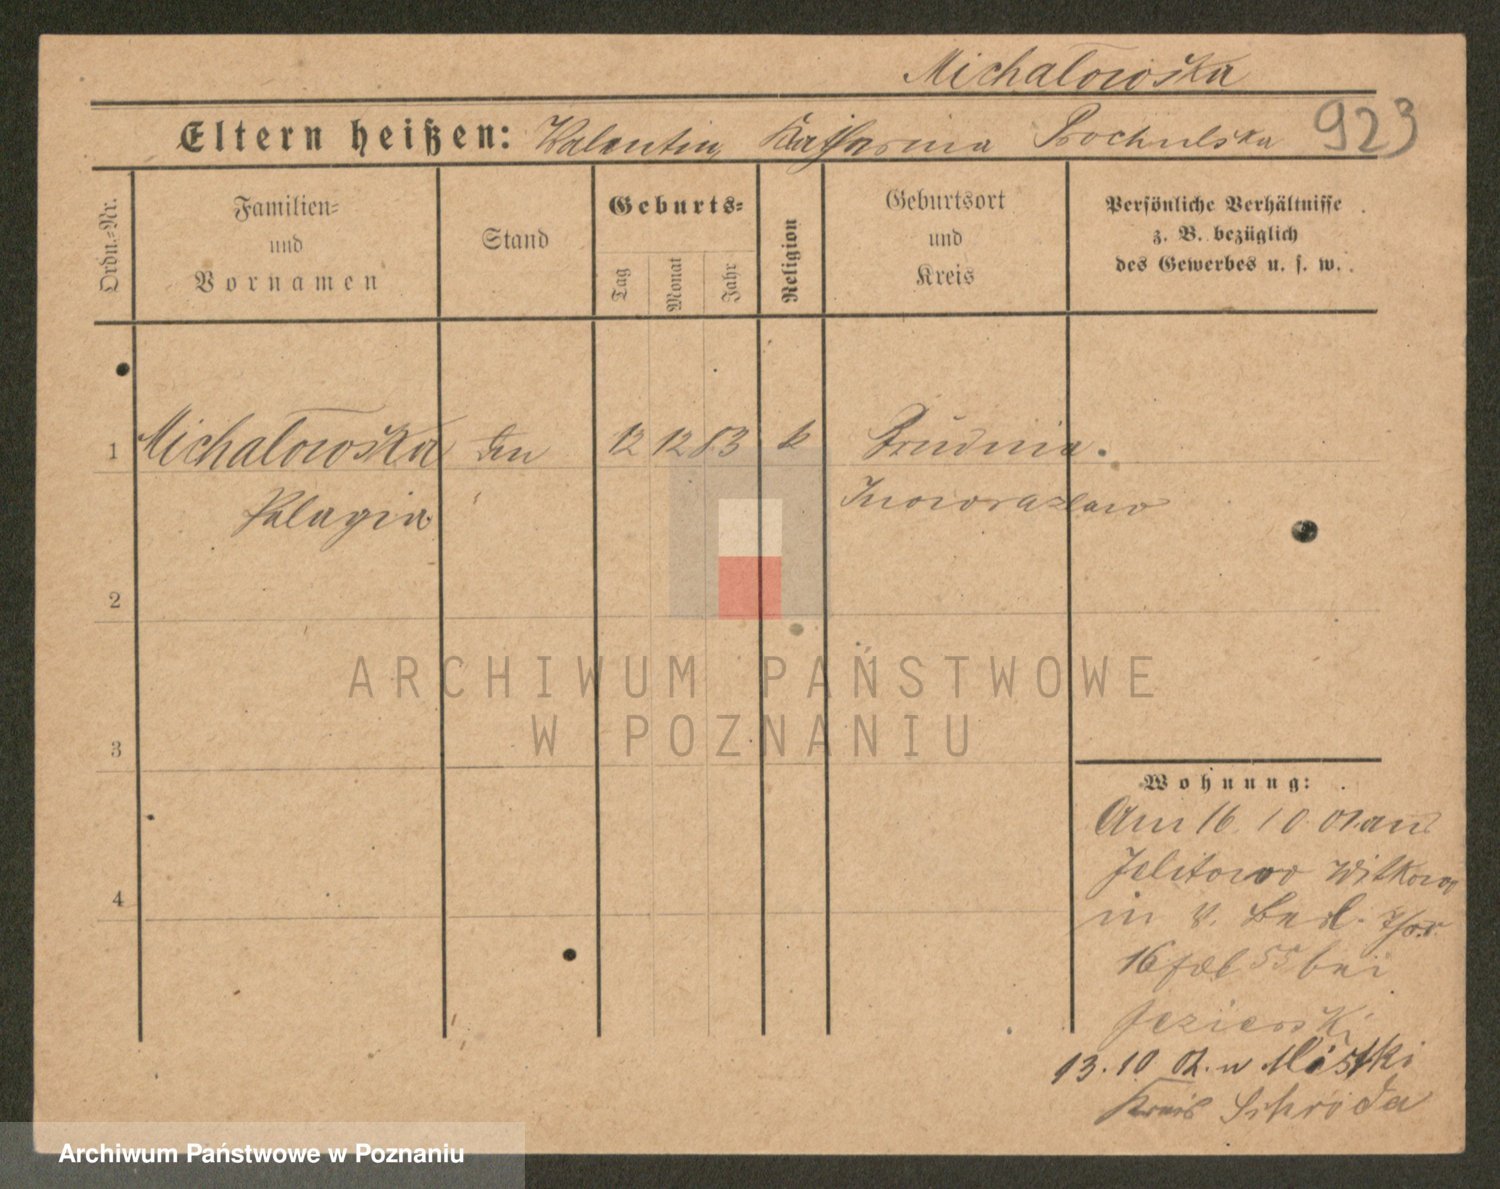 Michalowska
Eltern heißen: Valentin, Katharina Prochulska 923
Ordn.-Nr.
Familien-
und
Vornamen
Stand
Geburts-
Tag
Monat
Jahr
Religion
Geburtsort
und
Kreis
Persönliche Verhältnisse
z. B. bezüglich
des Gewerbes u. s. w.
1 Michalowska 12 12 83 k
Pelagia Inowrazlaw
2
3
4
Wohnung:
Am 16. 10. 01. aus
Jelitowo Witkowo
in
16 bei
Jezierski
13. 10. 02. n Mistki
Kreis Schroda
ARCHIWUM PAŃSTWOWE
W POZNANIU
Archiwum Państwowe w Poznaniu